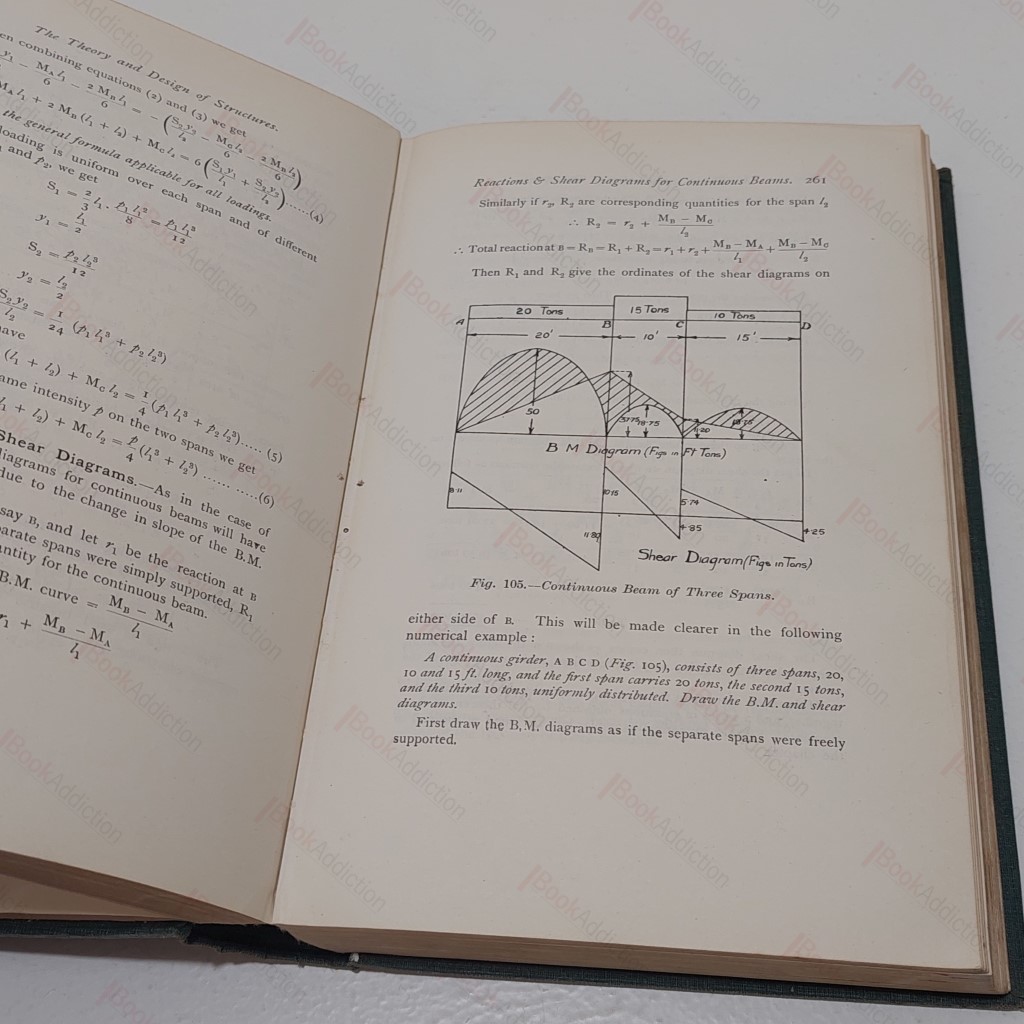 The Theory and Design of Structures.
en combining equations (2) and (3) we get
y₁ − M_A l₁/6 − 2 M_B l₁/6 = − (S₂y₂/l₂ − M_C l₂/6 − 2 M_B l₂/6)
M_A l₁ + 2 M_B (l₁ + l₂) + M_C l₂ = 6 (S₁y₁/l₁ + S₂y₂/l₂) ......(4)
the general formula applicable for all loadings.
loading is uniform over each span and of different
and p₂, we get
S₁ = 2/3 l₁ . p₁ l₁²/8 = p₁ l₁³/12
y₁ = l₁/2
S₂ = p₂ l₂³/12
y₂ = l₂/2
S₂ y₂/l₂ = 1/24 (p₁ l₁³ + p₂ l₂³)
have
(l₁ + l₂) + M_C l₂ = 1/4 (p₁ l₁³ + p₂ l₂³)..... (5)
ame intensity p on the two spans we get
l₁ + l₂) + M_C l₂ = p/4 (l₁³ + l₂³) ...........(6)
Shear Diagrams.—As in the case of
diagrams for continuous beams will have
due to the change in slope of the B.M.
say B, and let r₁ be the reaction at B
parate spans were simply supported, R₁
antity for the continuous beam.
B.M. curve = M_B − M_A/l₁
r₁ + M_B − M_A/l₁
Reactions & Shear Diagrams for Continuous Beams. 261
Similarly if r₂, R₂ are corresponding quantities for the span l₂
∴ R₂ = r₂ + M_B − M_C/l₂
∴ Total reaction at B = R_B = R₁ + R₂ = r₁ + r₂ + M_B − M_A/l₁ + M_B − M_C/l₂
Then R₁ and R₂ give the ordinates of the shear diagrams on
20 Tons 15 Tons 10 Tons
A B C D
20' 10' 15'
50 37.75 18.75 11.20 18.75
B M Diagram (Figs in Ft Tons)
8.11 10.15 5.74
11.89 4.85 4.25
Shear Diagram (Figs in Tons)
Fig. 105.—Continuous Beam of Three Spans.
either side of B. This will be made clearer in the following
numerical example :
A continuous girder, A B C D (Fig. 105), consists of three spans, 20,
10 and 15 ft. long, and the first span carries 20 tons, the second 15 tons,
and the third 10 tons, uniformly distributed. Draw the B.M. and shear
diagrams.
First draw the B.M. diagrams as if the separate spans were freely
supported.
BookAddiction